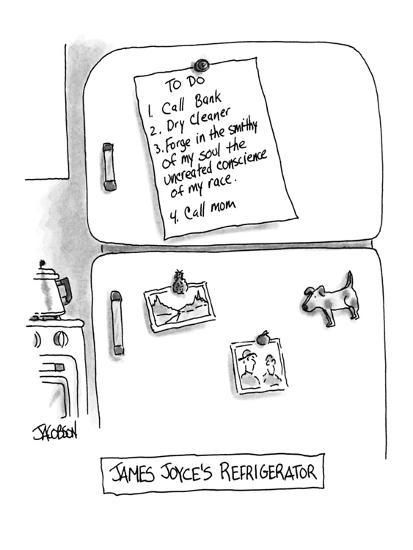 TO DO
1. Call Bank
2. Dry Cleaner
3. Forge in the smithy
of my soul the
uncreated conscience
of my race.
4. Call mom
JACOBSON
JAMES JOYCE'S REFRIGERATOR